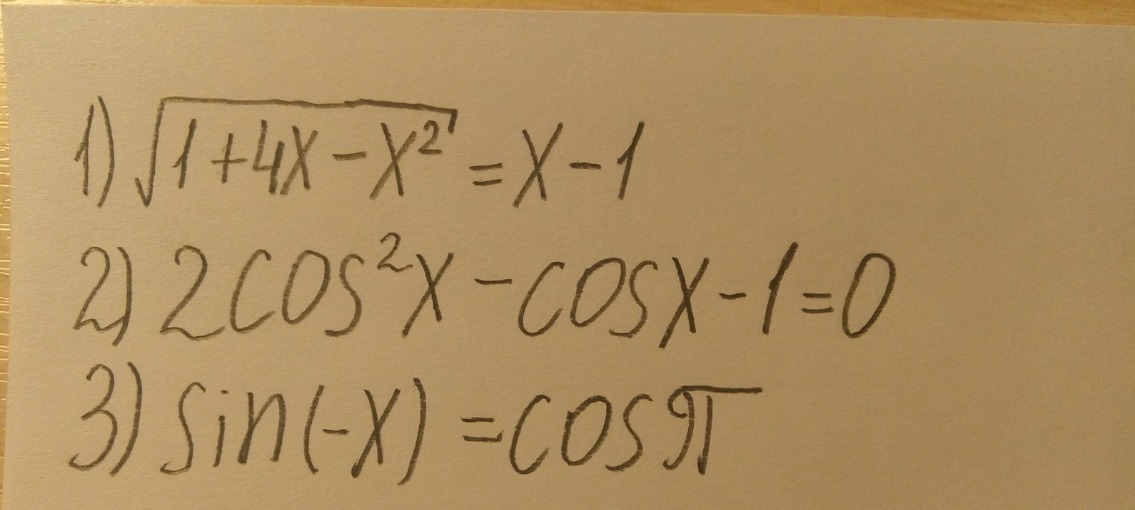 1) √(1+4x-x²) = x-1
2) 2cos²x - cosx - 1 = 0
3) sin(-x) = cosπ